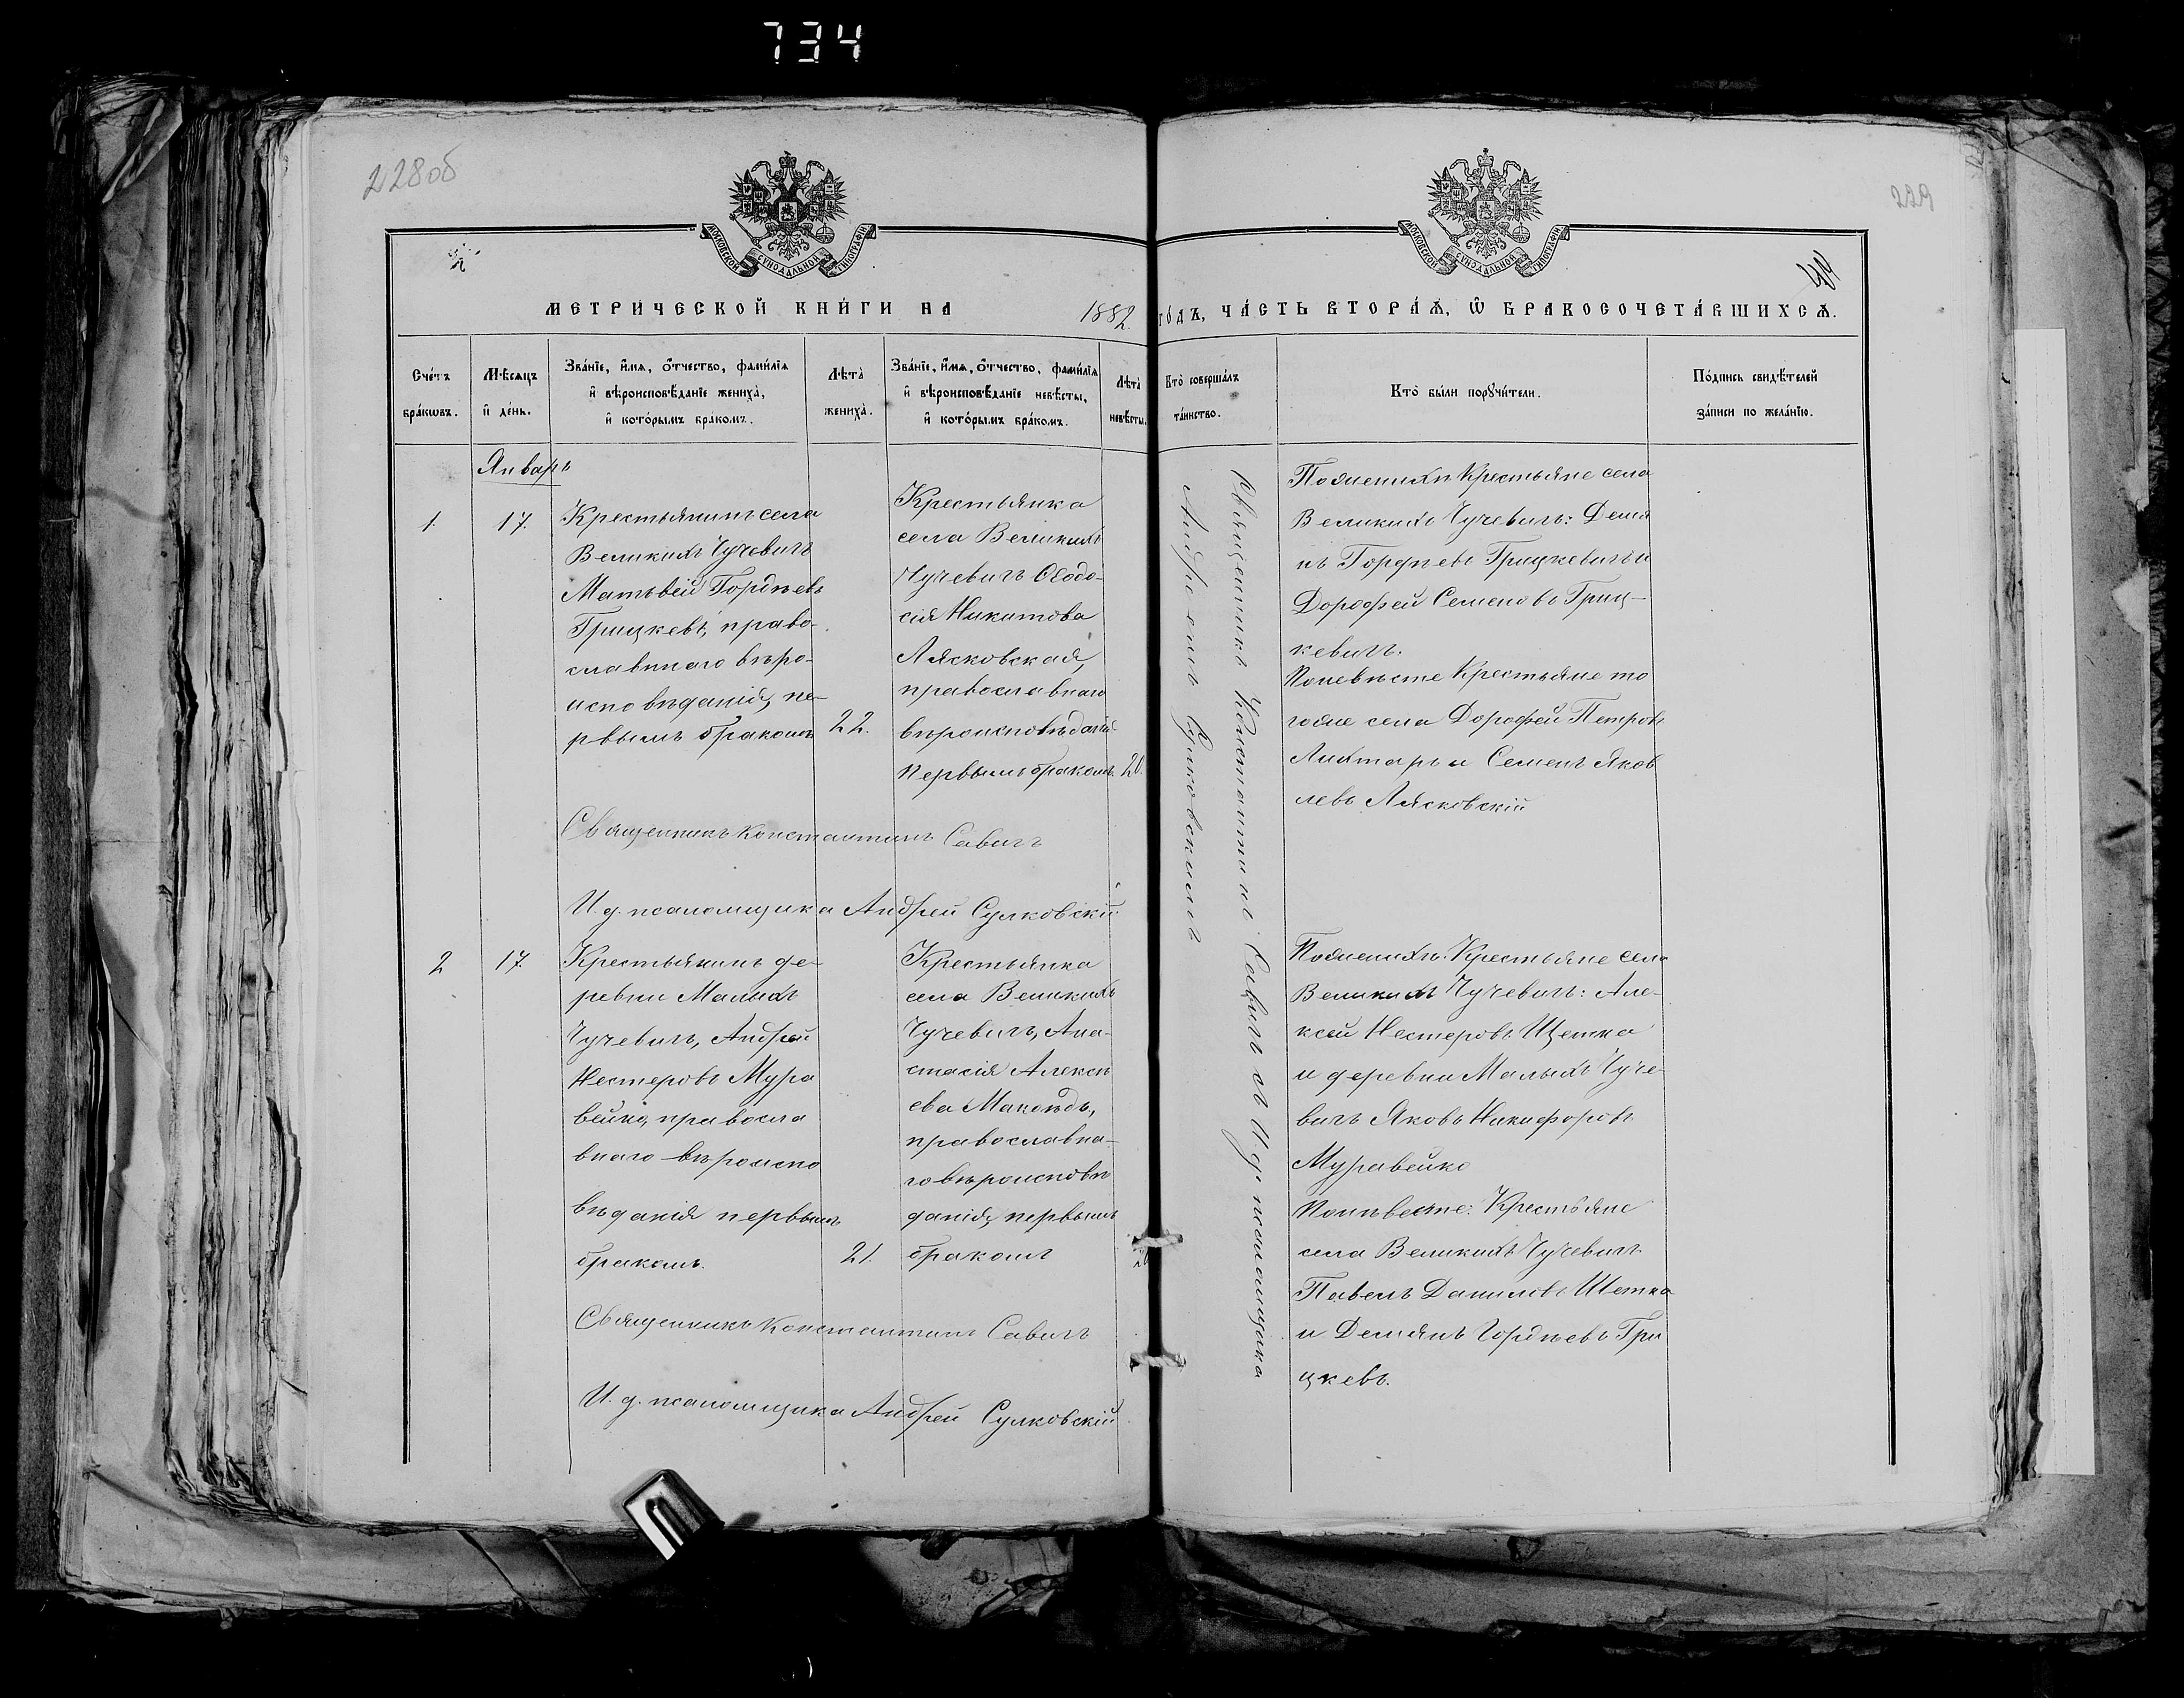 734
228об
229
МОСКОВСКОЙ СѴНОДАЛЬНОЙ ТИПОГРАФІИ
МОСКОВСКОЙ СѴНОДАЛЬНОЙ ТИПОГРАФІИ
МЕТРИ́ЧЕСКОЙ КНИ́ГИ НА 1882 го́дъ, ЧА́СТЬ ВТОРА́Ѧ, Ѡ БРАКОСОЧЕТА́ВШИХСѦ.
Сче́тъ
бра́кѡвъ.
Мѣ́сѧцъ
и҆ де́нь.
Зва́нїе, и҆́мѧ, о҆́тчество, фами́лїѧ
и҆ вѣроисповѣ́данїе жениха̀,
и҆ кото́рымъ бра́комъ.
Лѣта̀
жениха̀.
Зва́нїе, и҆́мѧ, о҆́тчество, фами́лїѧ
и҆ вѣроисповѣ́данїе невѣ́сты,
и҆ кото́рымъ бра́комъ.
Лѣта̀
невѣ́сты.
Кто̀ соверша́лъ
та́инство.
Кто̀ бы́ли порꙋчи́тели.
По́дпись свидѣ́телей
за́писи по жела́нїю.
Январь
1.
17.
Крестьянинъ села
Великихъ Чучевичъ
Матѳей Гордѣевъ
Грицкевъ, право-
славнаго вѣро-
исповѣданія, пе-
рвымъ бракомъ
22.
Крестьянка
села Великихъ
Чучевичъ Ѳеодо-
сія Никитова
Лясковская,
православнаго
вѣроисповѣданія
первымъ бракомъ.
20.
Священникъ Константинъ Савичъ съ И. д. псаломщика
Андреемъ Сулковскимъ
По женихѣ: Крестьяне села
Великихъ Чучевичъ: Демья
нъ Гордѣевъ Грицкевичъ и
Дорофей Семеновъ Гриц-
кевичъ.
По невѣсте Крестьяне то
гоже села Дорофей Петровъ
Лихтаръ и Семенъ Яков
левъ Лясковскій
Священникъ Константинъ Савичъ
И. д. псаломщика Андрей Сулковскій
2
17.
Крестьянинъ де-
ревни Малыхъ
Чучевичъ, Андрей
Нестеровъ Мура
вейко, правосла
внаго вѣроиспо
вѣданія первымъ
бракомъ.
21.
Крестьянка
села Великихъ
Чучевичъ, Ана-
стасія Алексѣ
ева Макоѣдъ,
православна-
го вѣроисповѣ
данія, первымъ
бракомъ
По женихѣ: Крестьяне села
Великихъ Чучевичъ: Але-
ксѣй Нестеровъ Щетка
и деревни Малыхъ Чуче-
вичъ Яковъ Никифоровъ
Муравейко
По невѣсте: Крестьяне
села Великихъ Чучевичъ
Павелъ Даниловъ Щетка
и Демянъ Гордѣевъ Гри
цкевъ.
Священникъ Константинъ Савичъ
И. д. псаломщика Андрей Сулковскій